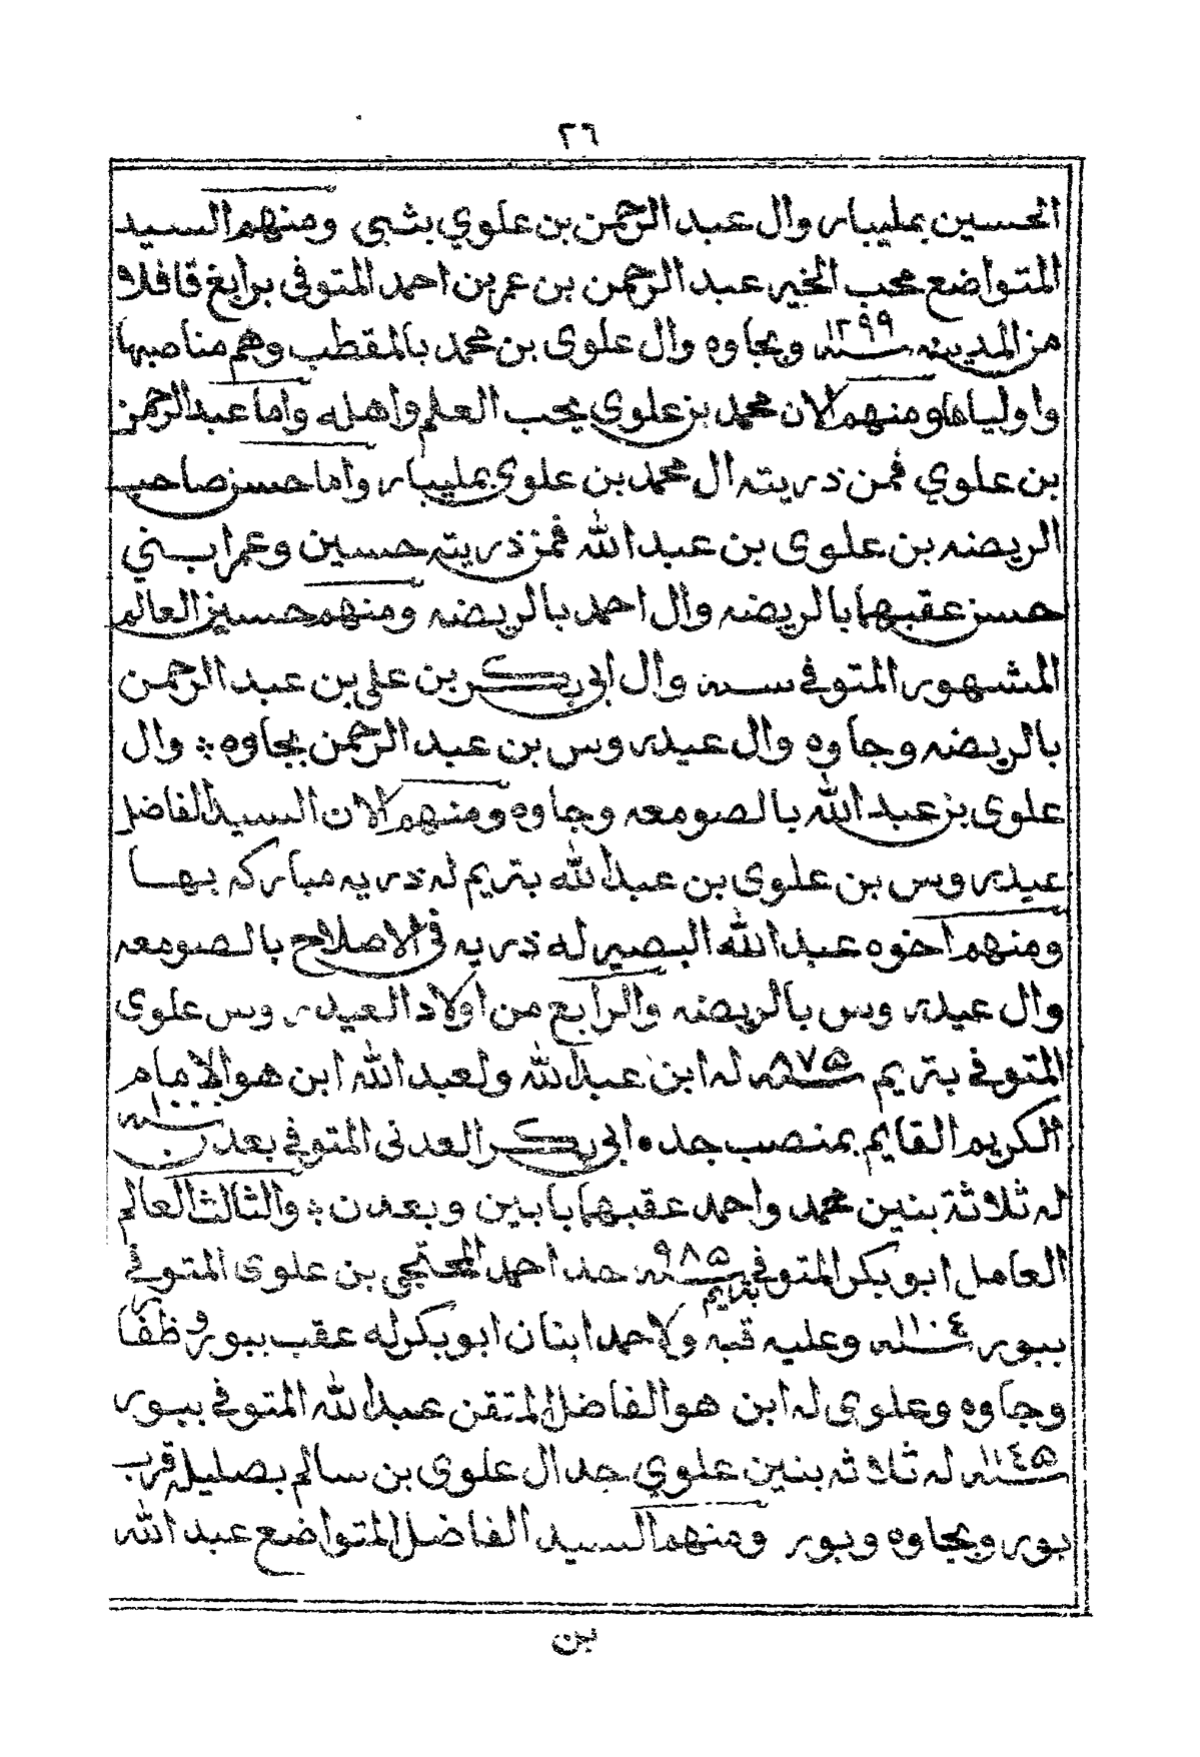 ٢٦
الحسين بمليبار وال عبد الرحمن بن علوي بثبي ومنهم السيد
المتواضع محب الخير عبد الرحمن بن عمر بن احمد المتوفى برابغ قافلا
من المدينه سنه ١٢٩٩ وبجاوه وال علوى بن محمد بالمقطب وهم مناصبها
واولياها ومنهم الان محمد بن علوي يحب العلم واهله واما عبد الرحمن
بن علوي فمن ذريته ال محمد بن علوي بمليبار واما حسن صاحب
الريضه بن علوى بن عبد الله فمن ذريته حسين وعمر ابني
حسن عقبهما بالريضه وال احمد بالريضه ومنهم حسين العالم
المشهور المتوفي سنه وال ابي بكر بن علي بن عبد الرحمن
بالريضه وجاوه وال عيدروس بن عبد الرحمن بجاوه ؞ وال
علوى بن عبد الله بالصومعه وجاوه ومنهم الان السيد الفاضل
عيدروس بن علوى بن عبد الله بتريم له ذريه مباركه بها
ومنهم اخوه عبد الله البصير له ذريه في الاصلاح بالصومعه
وال عيدروس بالريضه والرابع من اولاد العيدروس علوى
المتوفي بتريم سنه ٨٧٥ له ابن عبد الله ولعبد الله ابن هو الامام
الكريم القايم بمنصب جده ابي بكر العدني المتوفي بعدن سنه ١٠٠٠
له ثلاثة بنين محمد واحمد عقبهما بابين وبعدن ؞ والثالث العالم
العامل ابو بكر المتوفي بتريم سنه ٩٨٥ جد احمد المحتجي بن علوى المتوفي
ببور سنه ١١٠٤ وعليه قبه ولاحمد ابنان ابو بكر له عقب ببور وظفا
وجاوه وعلوى له ابن هو الفاضل المتقن عبد الله المتوفي ببور
سنه ١١٤٥ له ثلاثه بنين علوي جد ال علوى بن سالم بصليله قرب
بور وبجاوه وبور ومنهم السيد الفاضل المتواضع عبد الله
بن